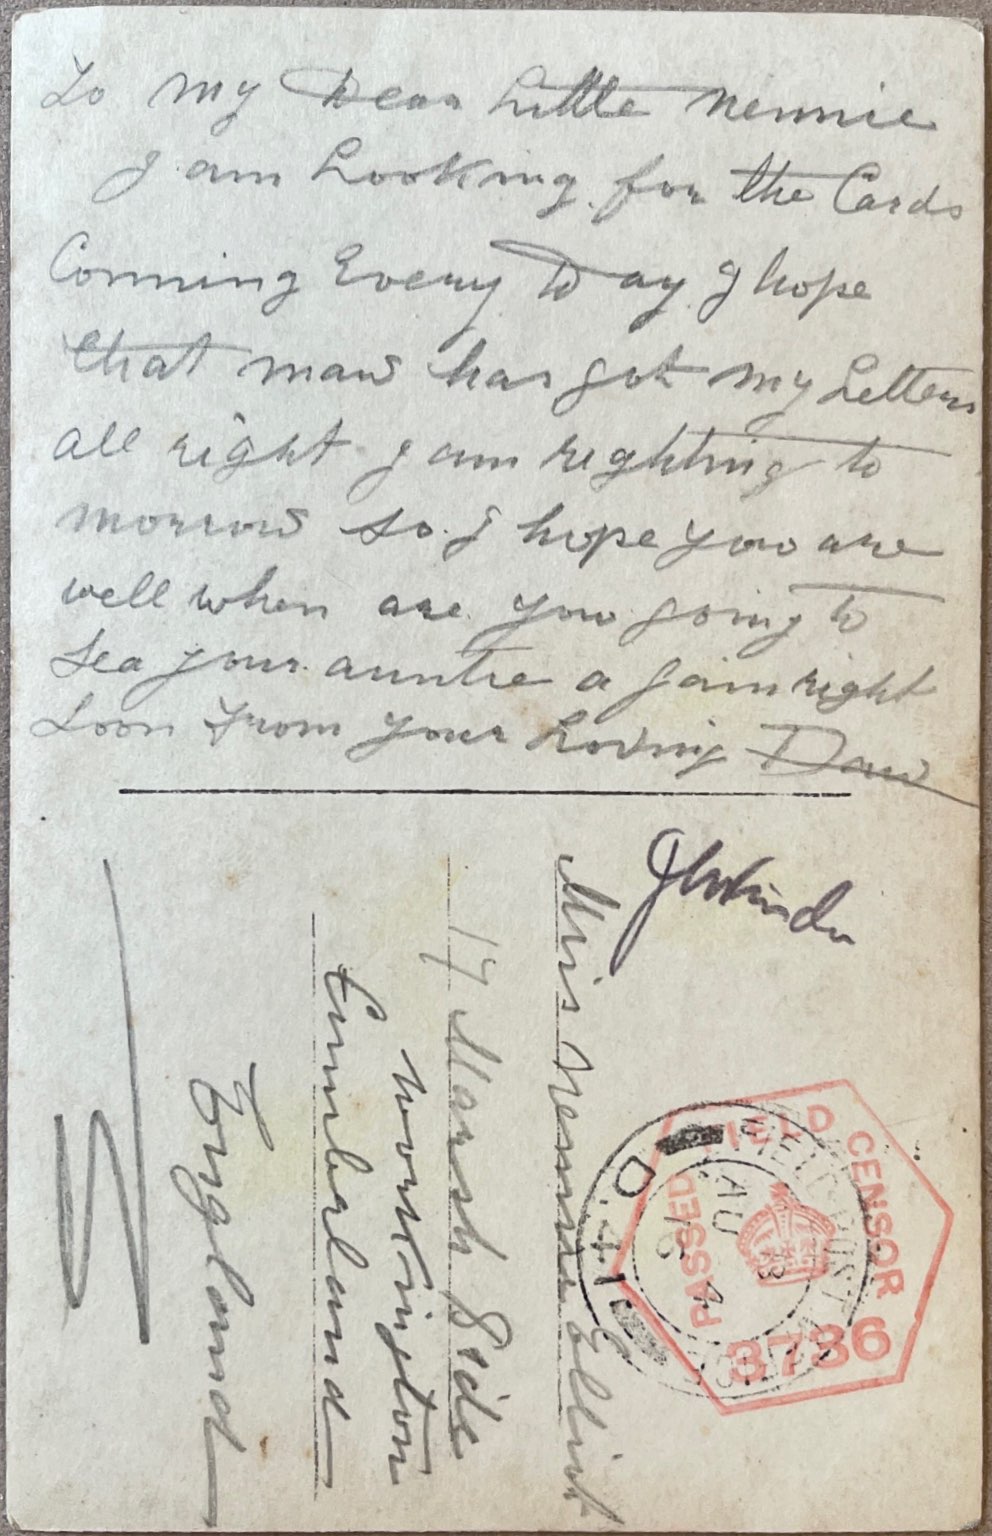 To my Dear Little Nennie
I am Looking for the Cards
Comming Every Day I hope
that maw has got my Letters
all right I am righting to
morrow so I hope you are
well when are you going to
sea your auntie a gain right
soon from your Loving Daw
Miss Nennie Elliot
17 Marsh Side
workington
Cumberland
England
FIELD CENSOR
PASSED
3786
FIELD POST
D.41
AU
4
16